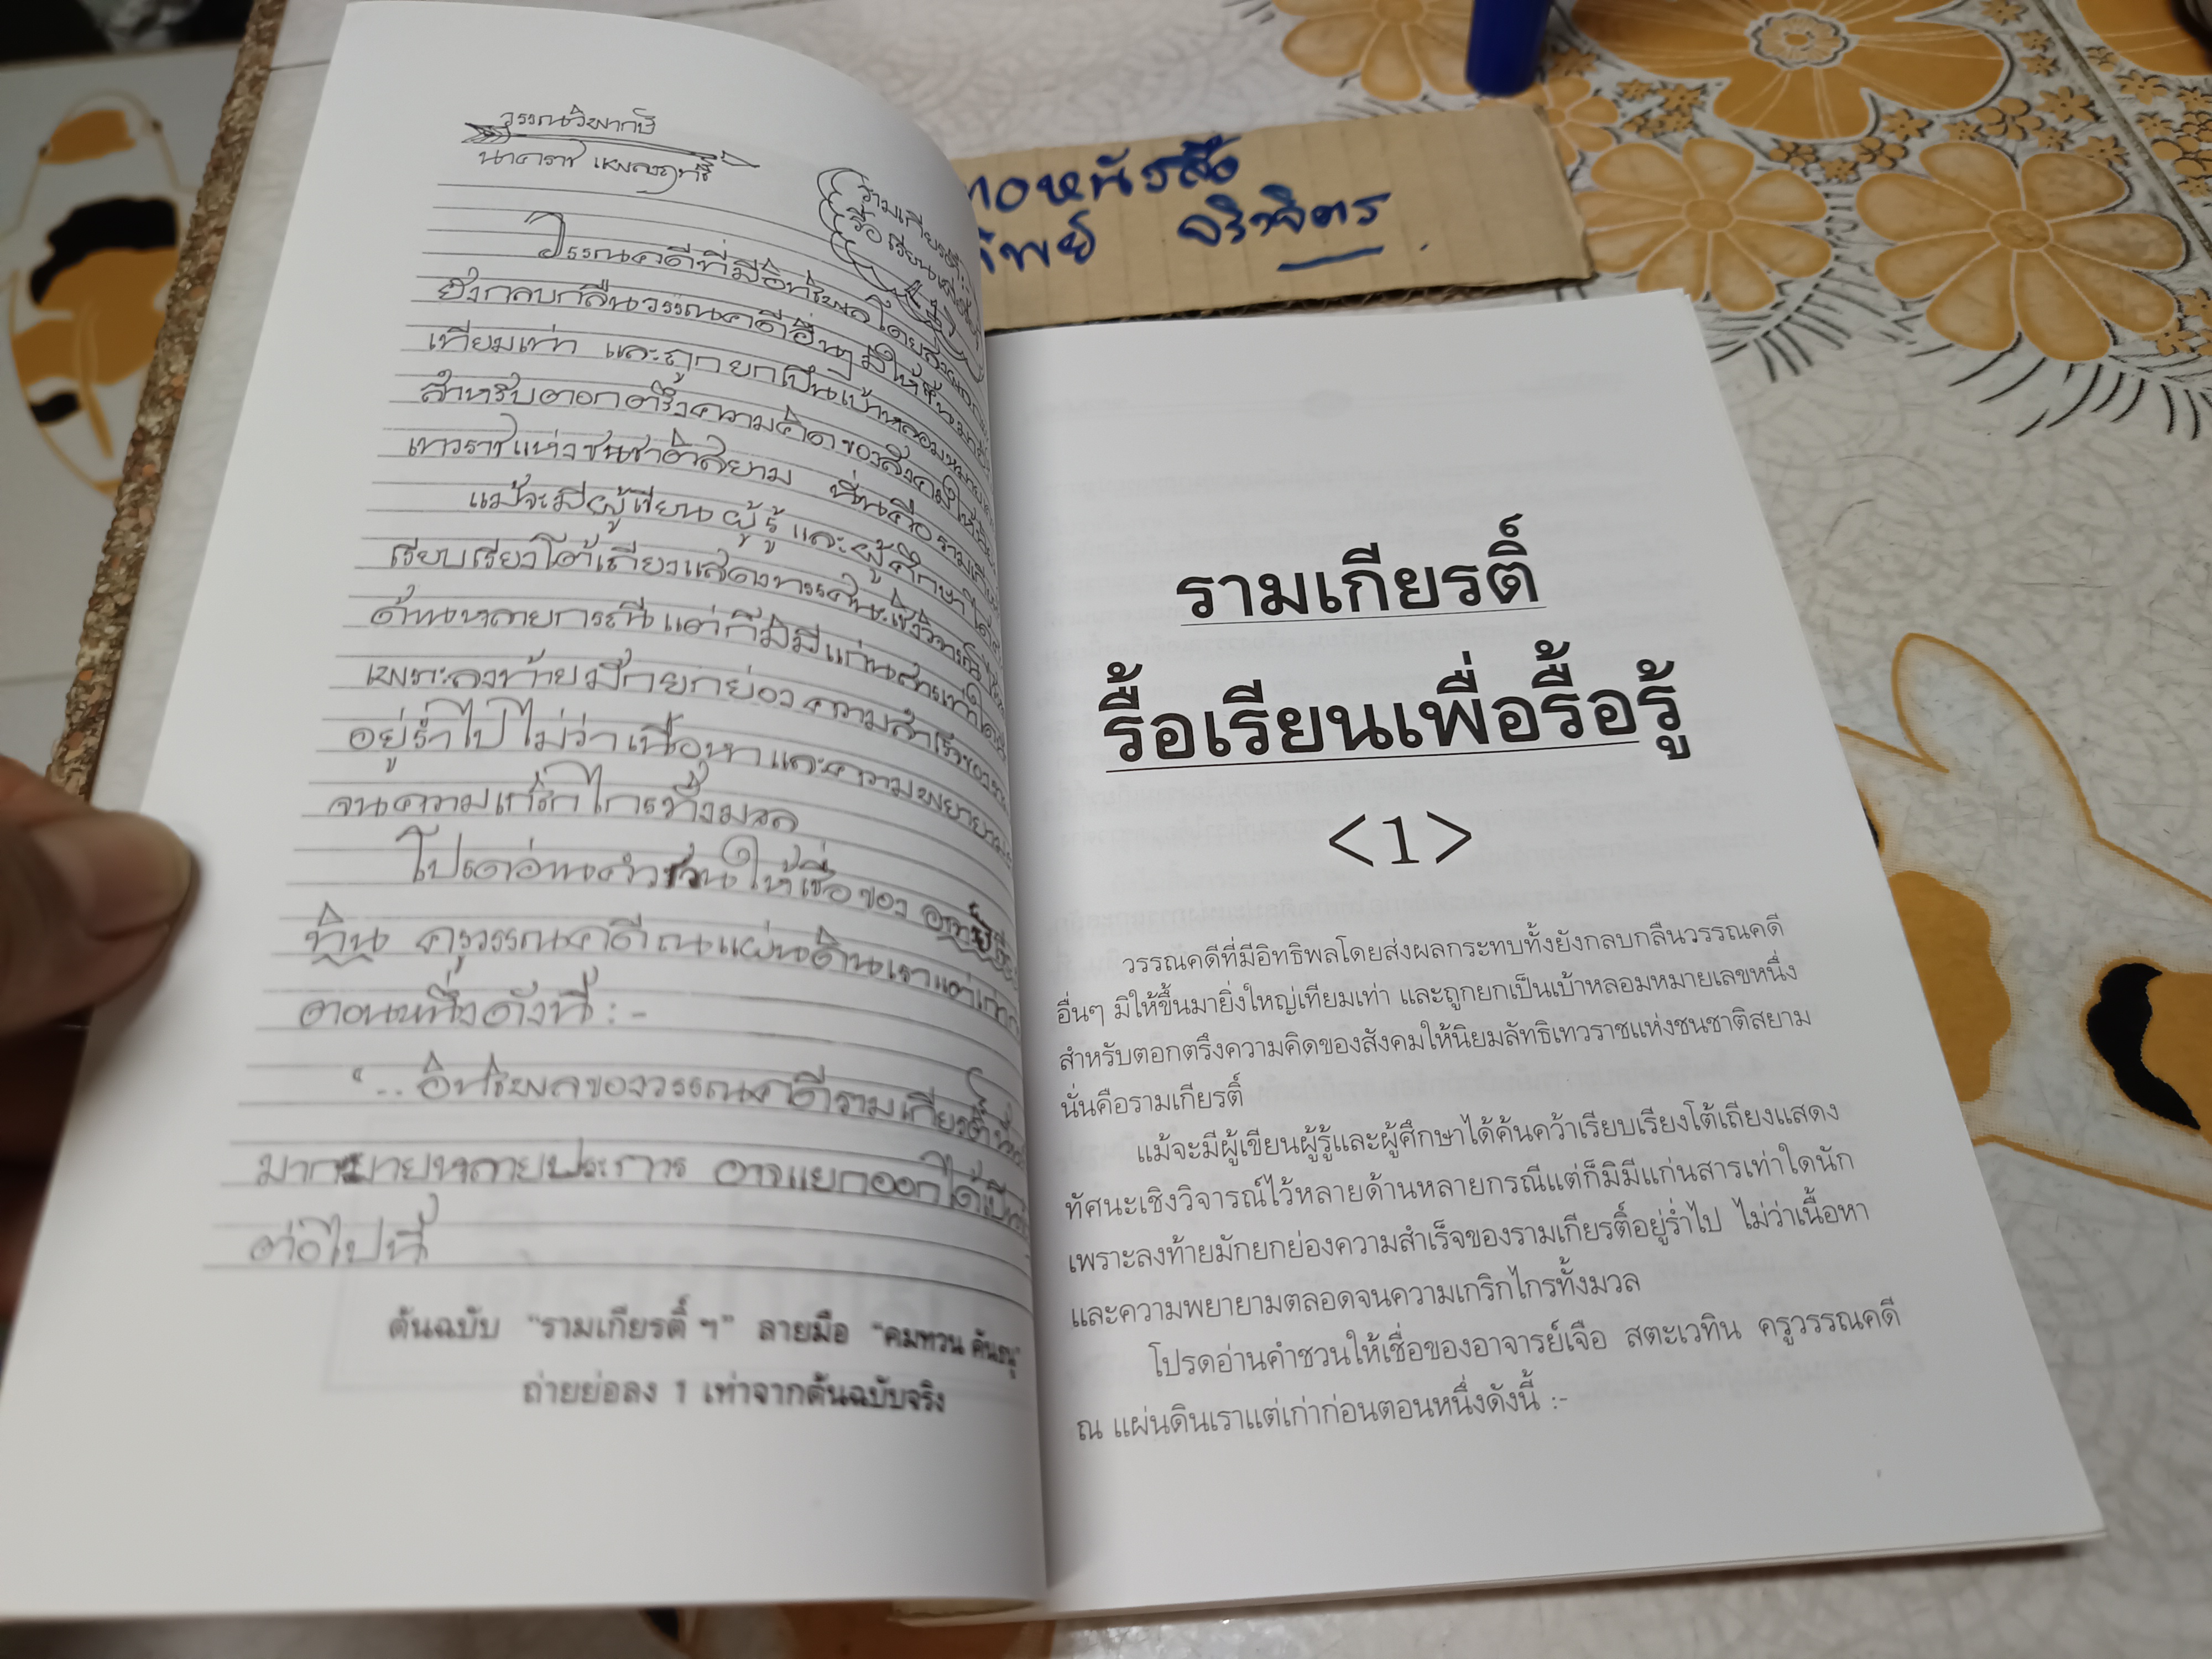 วรรณวิพากษ์
นาคราช
รามเกียรติ์
รื้อเรียนเพื่อ
วรรณคดีที่มีอิทธิพลโดยส่งผลกระ
ยังกลบกลืนวรรณคดีอื่นๆ มิให้ขึ้นมายิ่ง
เทียมเท่า และถูกยกเป็นเป้าหลอมหมายเลข
สำหรับตอกตรึงความคิดของสังคมให้นิยม
เทวราชแห่งชนชาติสยาม นั่นคือรามเกียรติ์
แม้จะมีผู้เขียน ผู้รู้ และผู้ศึกษาได้
เรียบเรียงโต้เถียงแสดงทรรศนะเชิงวิจารณ์ไว้
ด้านหลายกรณีแต่ก็มิมีแก่นสารเท่าใดนัก
เพราะลงท้ายมักยกย่องความสำเร็จของราม
อยู่ร่ำไป ไม่ว่าเนื้อหาและความพยายามต
จนความเกริกไกรทั้งมวล
โปรดอ่านคำชวนให้เชื่อของ อาจารย์เจือ
ทิน ครูวรรณคดี ณ แผ่นดินเราแต่เก่าก่อน
ตอนหนึ่งดังนี้ :-
“...อิทธิพลของวรรณคดีรามเกียรติ์ที่
มากมายหลายประการ อาจแยกออกได้เป็น
ต่อไปนี้
ต้นฉบับ "รามเกียรติ์ ฯ" ลายมือ "คมทวน คันธนู"
ถ่ายย่อลง 1 เท่าจากต้นฉบับจริง
หนังสือ
ทิพย์ จริงจิตร
รามเกียรติ์
รื้อเรียนเพื่อรื้อรู้
<1>
วรรณคดีที่มีอิทธิพลโดยส่งผลกระทบทั้งยังกลบกลืนวรรณคดี
อื่นๆ มิให้ขึ้นมายิ่งใหญ่เทียมเท่า และถูกยกเป็นเบ้าหลอมหมายเลขหนึ่ง
สำหรับตอกตรึงความคิดของสังคมให้นิยมลัทธิเทวราชแห่งชนชาติสยาม
นั่นคือรามเกียรติ์
แม้จะมีผู้เขียนผู้รู้และผู้ศึกษาได้ค้นคว้าเรียบเรียงโต้เถียงแสดง
ทัศนะเชิงวิจารณ์ไว้หลายด้านหลายกรณีแต่ก็มิมีแก่นสารเท่าใดนัก
เพราะลงท้ายมักยกย่องความสำเร็จของรามเกียรติ์อยู่ร่ำไป ไม่ว่าเนื้อหา
และความพยายามตลอดจนความเกริกไกรทั้งมวล
โปรดอ่านคำชวนให้เชื่อของอาจารย์เจือ สตะเวทิน ครูวรรณคดี
ณ แผ่นดินเราแต่เก่าก่อนตอนหนึ่งดังนี้ :-